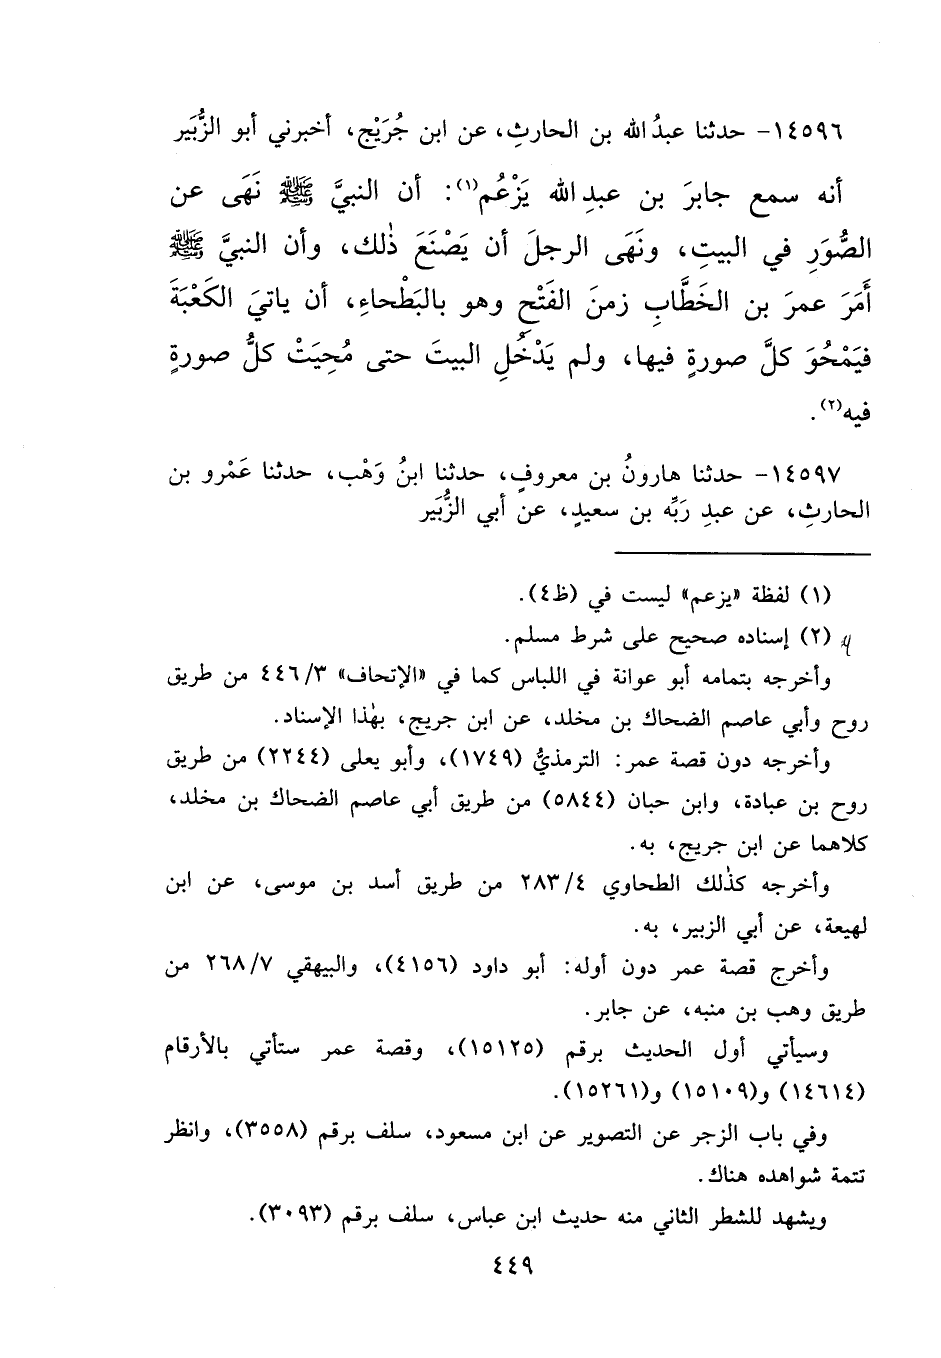 ١٤٥٩٦- حدثنا عبدُ الله بن الحارثِ، عن ابن جُرَيْج، أخبرني أبو الزُّبَير
أنه سمع جابرَ بن عبدِ الله يَزْعُم(١): أن النبيَّ ﷺ نَهَى عن
الصُّوَرِ في البيتِ، ونَهَى الرجلَ أن يَصْنَعَ ذٰلك، وأن النبيَّ ﷺ
أَمَرَ عمرَ بن الخَطَّابِ زمنَ الفَتْحِ وهو بالبَطْحاءِ، أن ياتيَ الكَعْبَةَ
فيَمْحُوَ كلَّ صورةٍ فيها، ولم يَدْخُلِ البيتَ حتى مُحِيَتْ كلُّ صورةٍ
فيه(٢).
١٤٥٩٧- حدثنا هارونُ بن معروفٍ، حدثنا ابنُ وَهْب، حدثنا عَمْرو بن
الحارثِ، عن عبدِ رَبِّه بن سعيدٍ، عن أبي الزُّبَير
(١) لفظة «يزعم» ليست في (ظ٤).
(٢) إسناده صحيح على شرط مسلم.
وأخرجه بتمامه أبو عوانة في اللباس كما في «الإتحاف» ٤٤٦/٣ من طريق
روح وأبي عاصم الضحاك بن مخلد، عن ابن جريج، بهٰذا الإسناد.
وأخرجه دون قصة عمر: الترمذيُّ (١٧٤٩)، وأبو يعلى (٢٢٤٤) من طريق
روح بن عبادة، وابن حبان (٥٨٤٤) من طريق أبي عاصم الضحاك بن مخلد،
كلاهما عن ابن جريج، به.
وأخرجه كذٰلك الطحاوي ٢٨٣/٤ من طريق أسد بن موسى، عن ابن
لهيعة، عن أبي الزبير، به.
وأخرج قصة عمر دون أوله: أبو داود (٤١٥٦)، والبيهقي ٢٦٨/٧ من
طريق وهب بن منبه، عن جابر.
وسيأتي أول الحديث برقم (١٥١٢٥)، وقصة عمر ستأتي بالأرقام
(١٤٦١٤) و(١٥١٠٩) و(١٥٢٦١).
وفي باب الزجر عن التصوير عن ابن مسعود، سلف برقم (٣٥٥٨)، وانظر
تتمة شواهده هناك.
ويشهد للشطر الثاني منه حديث ابن عباس، سلف برقم (٣٠٩٣).
٤٤٩